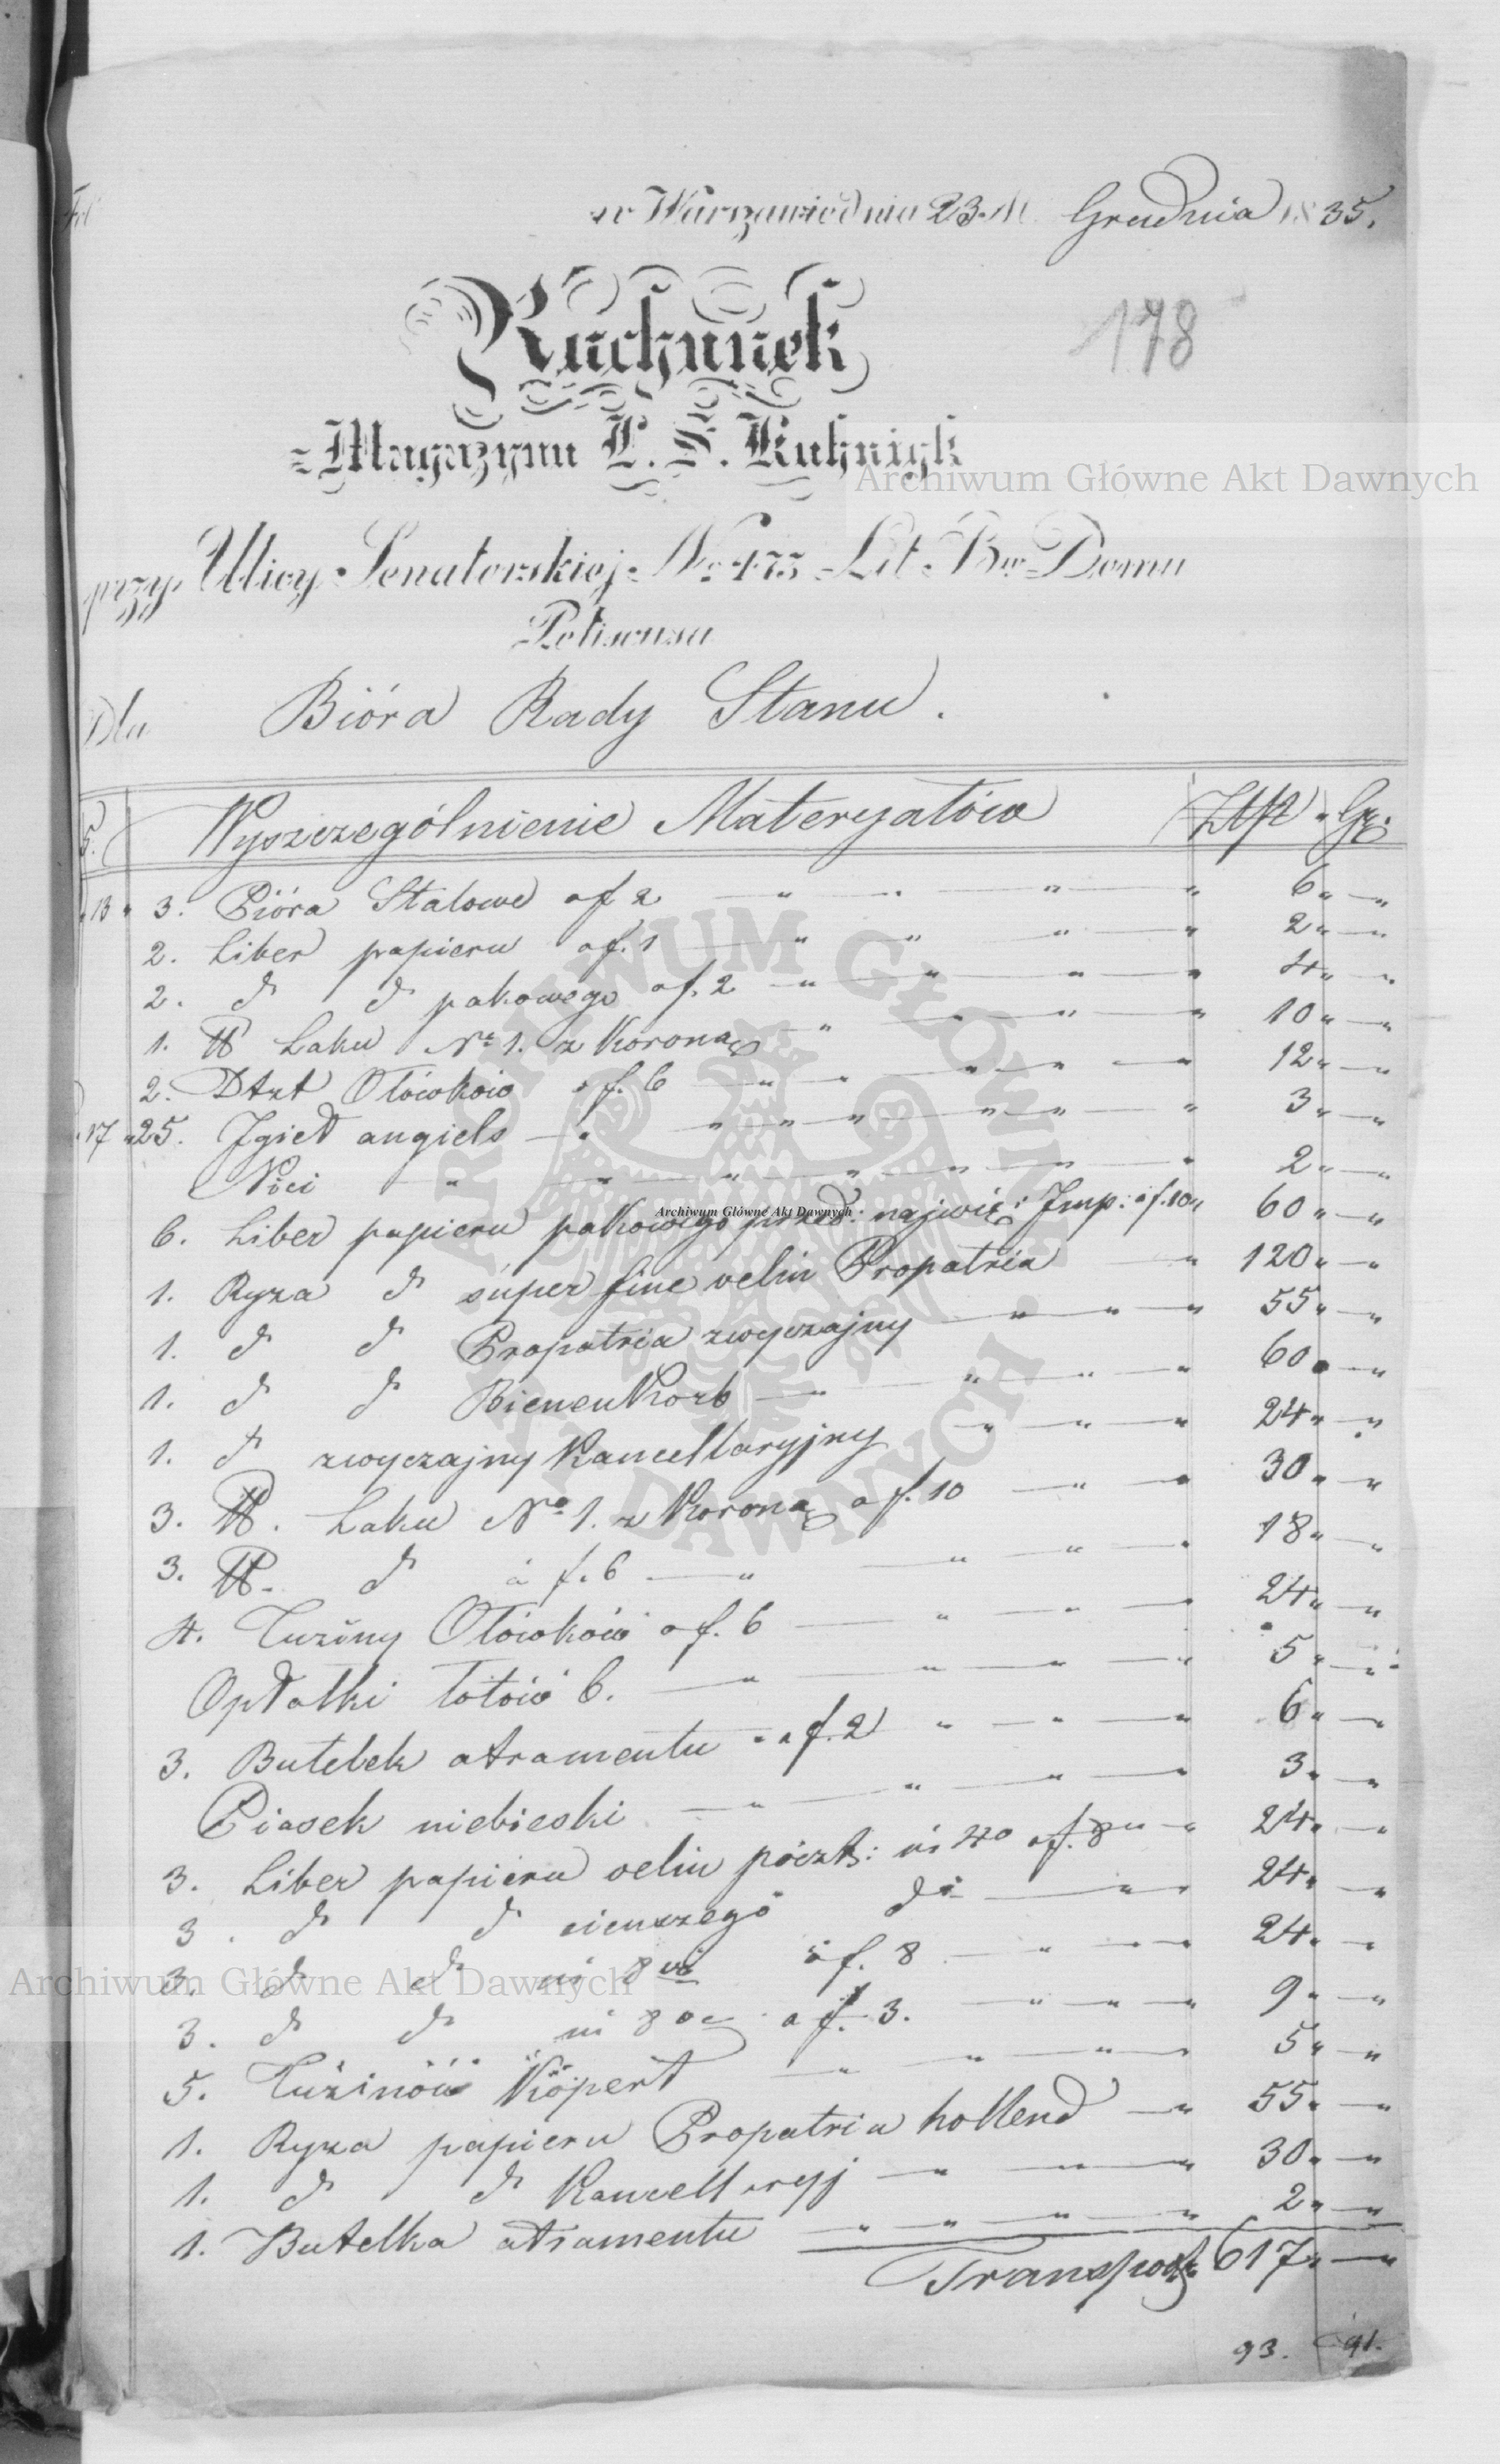 w Warszawie dnia 23. M. Grudnia 1835.
178
Rachunek
Magazynu L. S. Kuhnigk
Archiwum Główne Akt Dawnych
przy Ulicy Senatorskiej No 473 Lit. B w Domu
Petiscusa
Dla Bióra Rady Stanu.
Wyszczególnienie Materyałów Złp Gr.
13 3. Pióra Stalowe a f 2 6
2. Liber papieru a f. 1 2
2. do do pakowego a f. 2 4
1. ℔ Laku No 1. z Koroną 10
2. Dtzt Ołówków a f. 6 12
17 25. Jgieł angiels 3
Nici 2
6. Liber papieru pakowego przed: najwię: Jmp: a f. 10 60
Archiwum Główne Akt Dawnych
1. Ryza do super fine velin Propatria 120
1. do do Propatria zwyczajny 55
1. do do Bienenkorb 60
1. do zwyczajny Kancellaryjny 24
3. ℔. Laku No 1. z Koroną a f. 10 30
3. ℔. do à f. 6 18
4. Tuziny Ołówków a f. 6 24
Opłatki łotów 6. 5
3. Butelek atramentu a f. 2 6
Piasek niebieski 3
3. Liber papieru velin poczt: in 4o a f. 8 24
3. do do cienszego do 24
3. do do in 8vo à f. 8 24
Archiwum Główne Akt Dawnych
3. do do in 8vo a f. 3. 9
5. Tuzinów Kopert 5
1. Ryza papieru Propatria hollend 55
1. do do Kancellaryj 30
1. Butelka atramentu 2
Transport 617
93. 91.
ARCHIWUM GŁÓWNE AKT DAWNYCH